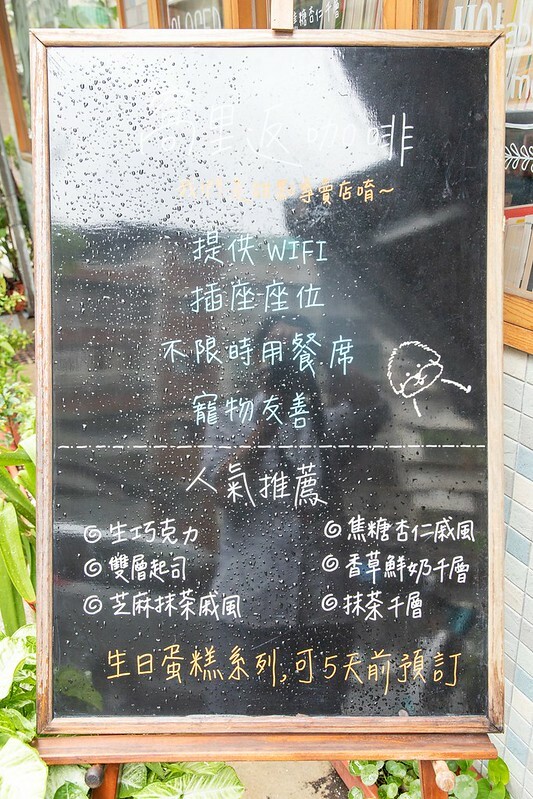 焦糖杏仁千層
里返咖啡
專賣店唷~
提供 WIFI
插座座位
不限時用餐席
寵物友善
人氣推薦
◎ 生巧克力
◎ 焦糖杏仁戚風
◎ 雙層起司
◎ 香草鮮奶千層
◎ 芝麻抹茶戚風
◎ 抹茶千層
生日蛋糕系列,可5天前預訂